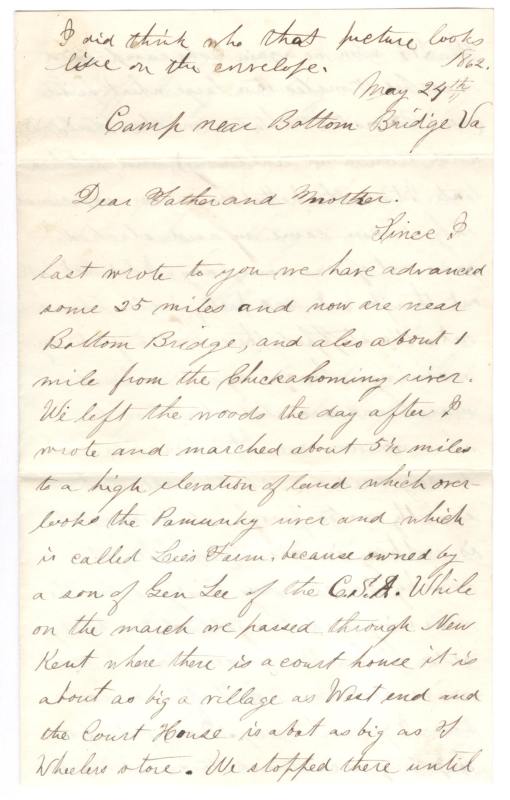 I did think who that picture looks
like on the envelope.
1862.
May 24th
Camp near Bottom Bridge Va
Dear Father and Mother.
Since I
last wrote to you we have advanced
some 25 miles and now are near
Bottom Bridge, and also about 1
mile from the Chickahominy river.
We left the woods the day after I
wrote and marched about 5½ miles
to a high elevation of land which over-
looks the Pamunky river and which
is called Lee's Farm, because owned by
a son of Gen Lee of the C.S.A. While
on the march we passed through New
Kent where there is a court house it is
about as big a village as West end and
the Court House is abot as big as
Wheelers store. We stopped there until